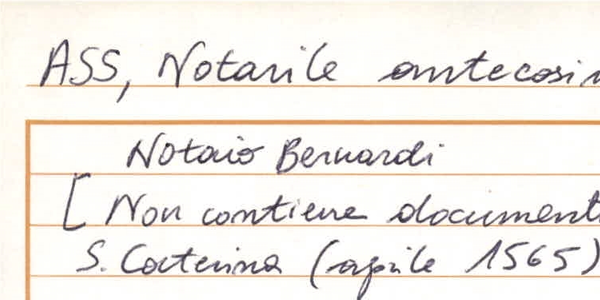 ASS, Notarile antecosi
Notaio Bernardi
[ Non contiene document
S. Caterina (aprile 1565)